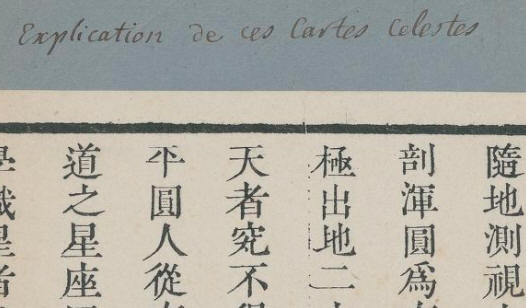 Explication de ces Cartes Celestes
隨地測視
剖渾圓為
極出地二
天者究不
平圓人從
道之星座